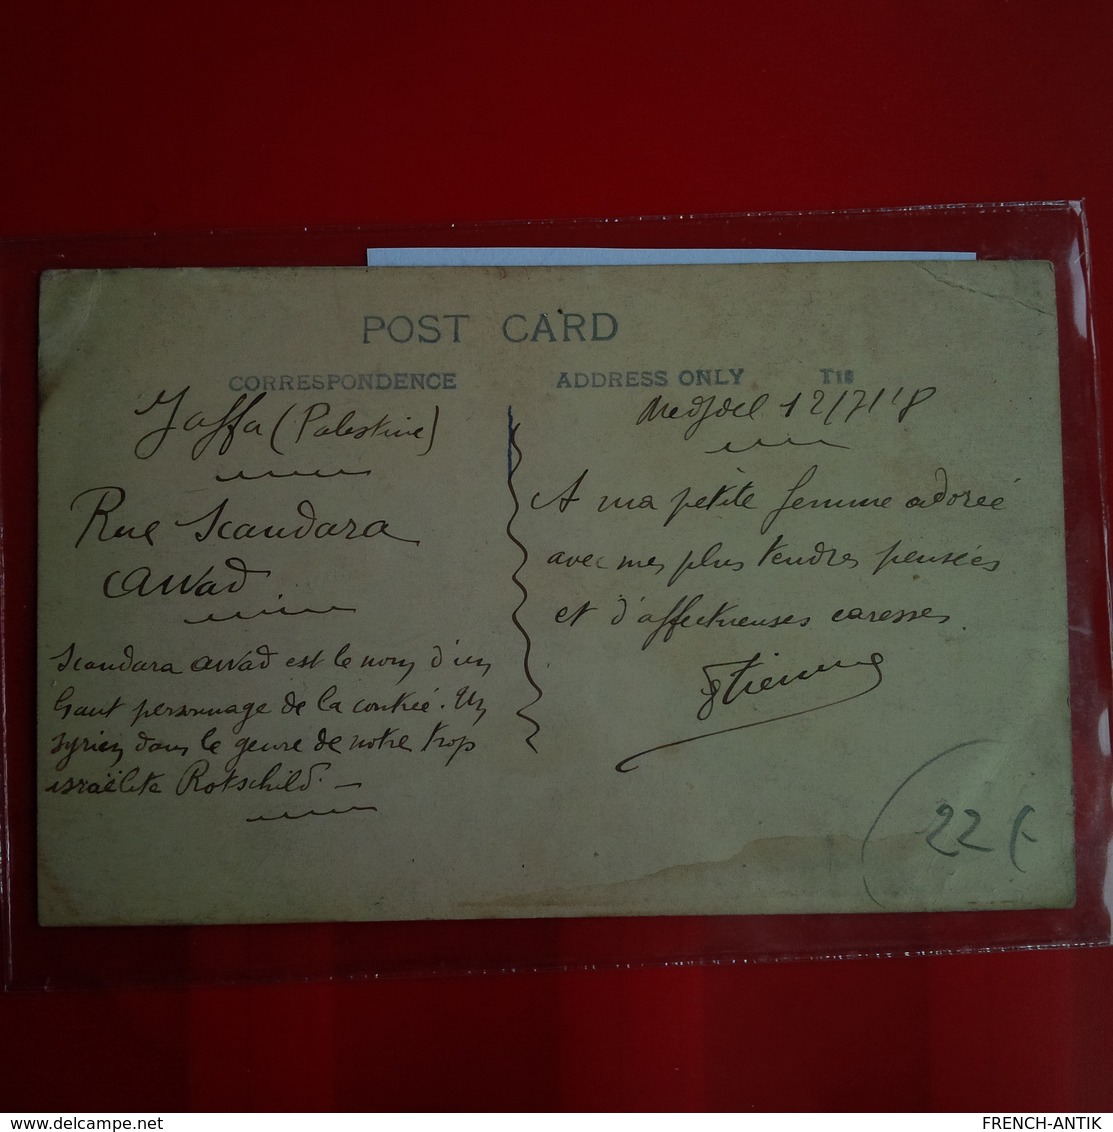 POST CARD
CORRESPONDENCE
ADDRESS ONLY
T16
Jaffa (Palestine)
Rue Scandara
Awad
Scandara Awad est le nom d'un
haut personnage de la contrée. Un
syrien dans le genre de notre trop
israëlite Rotschild. —
Medjdel 12/7/18
A ma petite femme adorée
avec mes plus tendres pensées
et d'affectueuses caresses.
Etienne
22 €
delcampe.net
FRENCH-ANTIK